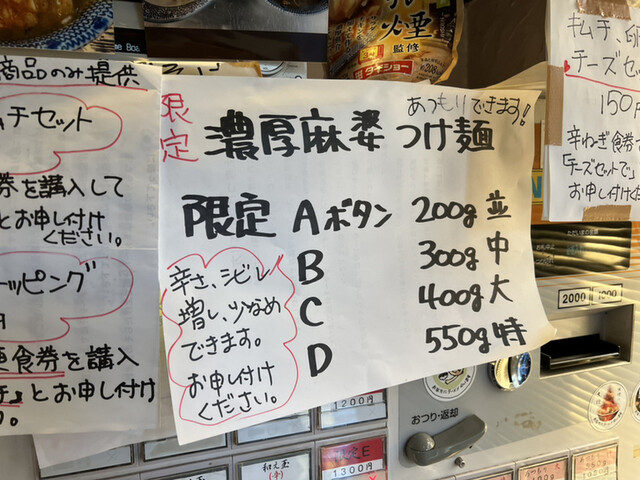 監修
商品のみ提供
ムチセット
券を購入して
とお申し付け
ください。
トッピング
更食券を購入
とお申し付け
限定
あつもりできます!
濃厚麻婆つけ麺
限定 Aボタン 200g 並
B 300g 中
C 400g 大
D 550g 特
辛さ、シビレ
増し、少なめ
できます。
お申し付け
ください。
キムチ、卵
チーズセット
150円
辛ねぎ食券で
「チーズセットで」
お申し付けく
2000 1000
おつり・返却
1200円
和え玉
1300円